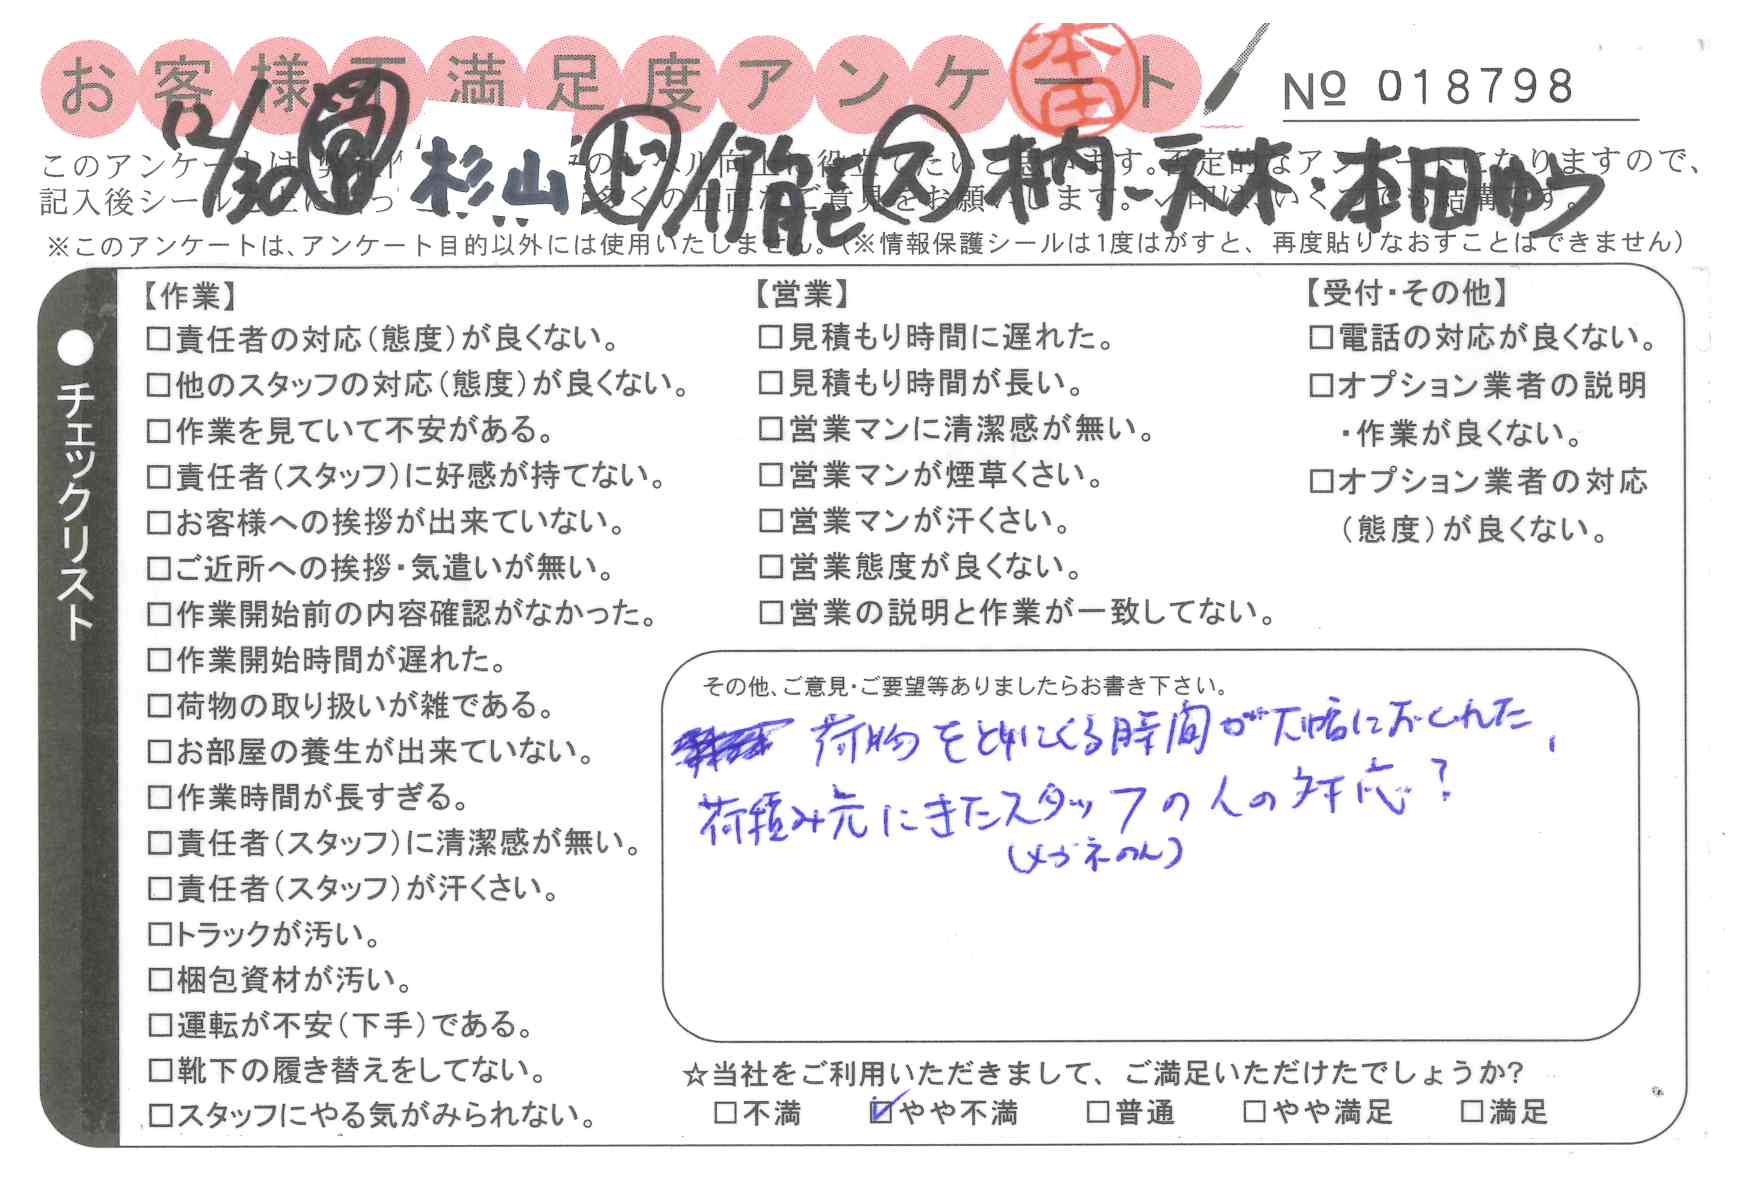 お客様不満足度アンケート
本田
№ 018798
12/30 営 杉山 ト 熊 ス 本田ゆう
※このアンケートは、アンケート目的以外には使用いたしません。(※情報保護シールは1度はがすと、再度貼りなおすことはできません)
●チェックリスト
【作業】
□責任者の対応(態度)が良くない。
□他のスタッフの対応(態度)が良くない。
□作業を見ていて不安がある。
□責任者(スタッフ)に好感が持てない。
□お客様への挨拶が出来ていない。
□ご近所への挨拶・気遣いが無い。
□作業開始前の内容確認がなかった。
□作業開始時間が遅れた。
□荷物の取り扱いが雑である。
□お部屋の養生が出来ていない。
□作業時間が長すぎる。
□責任者(スタッフ)に清潔感が無い。
□責任者(スタッフ)が汗くさい。
□トラックが汚い。
□梱包資材が汚い。
□運転が不安(下手)である。
□靴下の履き替えをしてない。
□スタッフにやる気がみられない。
【営業】
□見積もり時間に遅れた。
□見積もり時間が長い。
□営業マンに清潔感が無い。
□営業マンが煙草くさい。
□営業マンが汗くさい。
□営業態度が良くない。
□営業の説明と作業が一致してない。
【受付・その他】
□電話の対応が良くない。
□オプション業者の説明
・作業が良くない。
□オプション業者の対応
(態度)が良くない。
その他、ご意見・ご要望等ありましたらお書き下さい。
荷物をとりにくる時間が大幅におくれた、
荷積み元にきたスタッフの人の対応?
(メガネの人)
☆当社をご利用いただきまして、ご満足いただけたでしょうか?
□不満 ☑やや不満 □普通 □やや満足 □満足